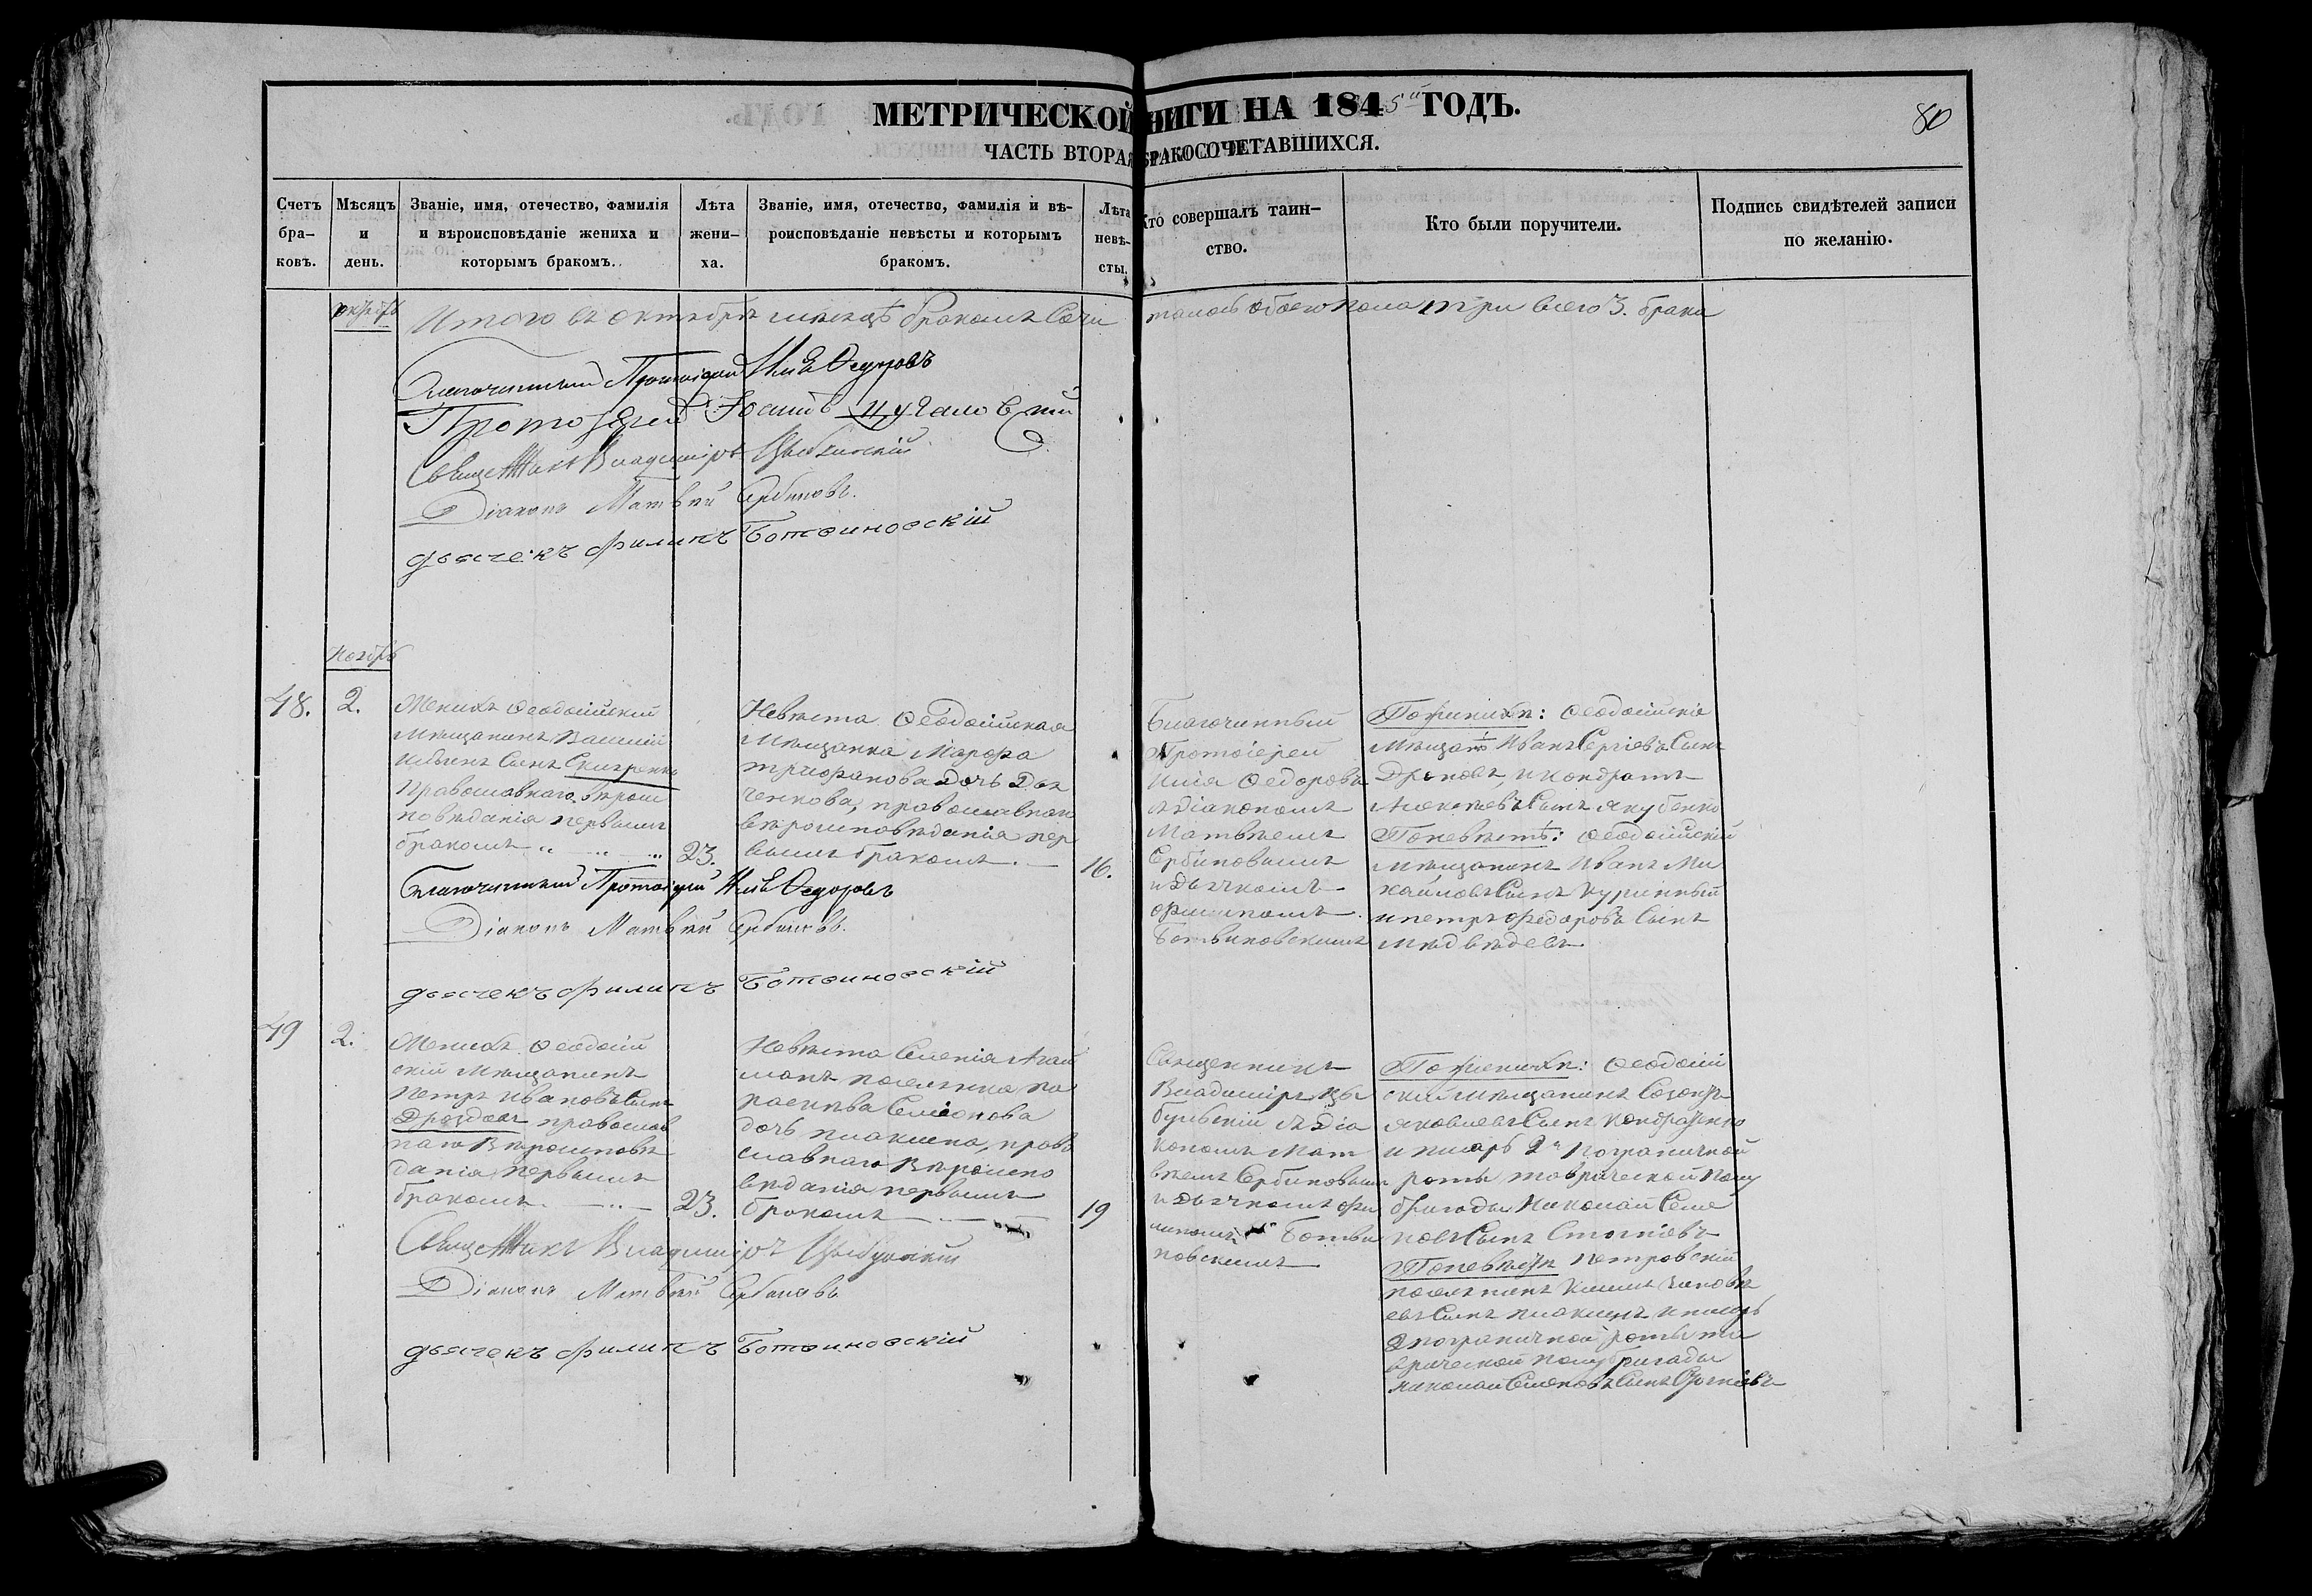 МЕТРИЧЕСКОЙ КНИГИ НА 1845й ГОДЪ.
80
ЧАСТЬ ВТОРАЯ БРАКОСОЧЕТАВШИХСЯ.
Счетъ бра-ковъ.
Мѣсяцъ и день.
Званіе, имя, отечество, фамилія и вѣроисповѣданіе жениха и которымъ бракомъ.
Лѣта жени-ха.
Званіе, имя, отечество, фамилія и вѣ-роисповѣданіе невѣсты и которымъ бракомъ.
Лѣта невѣ-сты.
Кто совершалъ таин-ство.
Кто были поручители.
Подпись свидѣтелей записи по желанію.
октябрь
Итого въ октябрѣ мѣсяцѣ бракомъ сочи
талось обоего пола три всего 3. брака
Благочинный Протоіерей Илія Ѳедоровъ
Протоіерей Іосифъ
Священникъ Владиміръ Цыбульскій
Діаконъ Матвѣй Сербиновъ.
дьячекъ Филипъ Ботвиновскій
Ноябрь
48.
2.
Женихъ Ѳеодосійскій
мѣщанинъ Василій
сынъ
православнаго вѣроис
повѣданія первымъ
бракомъ
23.
Невѣста Ѳеодосійская
мѣщанка Марѳа
Триѳанова дочь
ченкова, православнаго
вѣроисповѣданія пер
вымъ бракомъ.
16.
Благочинный
Протоіерей
Илія Ѳедоровъ
съ діакономъ
Матвѣемъ
Сербиновымъ
и дьячкомъ
Филипомъ
Ботвиновскимъ
По женихѣ: Ѳеодосійскіе
мѣщане Иванъ Сергіевъ Сынъ
и Кондратъ
Алексѣевъ Сынъ Якубенко
По невѣстѣ: Ѳеодосійскій
мѣщанинъ Иванъ Ми
хайловъ Сынъ Куринный
и Петръ Федоровъ Сынъ
Медведевъ
Благочинный Протоіерей Илія Ѳедоровъ
Діаконъ Матвѣй Сербиновъ.
дьячекъ Филипъ Ботвиновскій
49
2.
Женихъ Ѳеодосій
скій мѣщанинъ
Петръ Ивановъ Сынъ
Дроздовъ православ
наго вѣроисповѣ
данія первымъ
бракомъ
23.
Невѣста Селенія Агай
манъ поселянка Па
раскева Семіонова
дочь Плаксина, право
славнаго вѣроиспо
вѣданія первымъ
бракомъ
19
Священникъ
Владиміръ Цы
бульскій съ Діа
кономъ Мат
вѣемъ Сербиновымъ
и дьячкомъ Фи
липомъ Ботви
новскимъ
По женихѣ: Ѳеодосій
скій мѣщанинъ Созонтъ
Яковлевъ Сынъ Кондратенко
и писарь 2й пограничной
роты таврической полу
бригады Николай Семе
новъ Сынъ
По невѣстѣ Петровскій
поселянинъ
евъ Сынъ Плаксинъ и писарь
2 пограничной роты та
врической полубригады
Николай Семеновъ Сынъ
Священникъ Владиміръ Цыбульскій
Діаконъ Матвѣй Сербиновъ
дьячекъ Филипъ Ботвиновскій